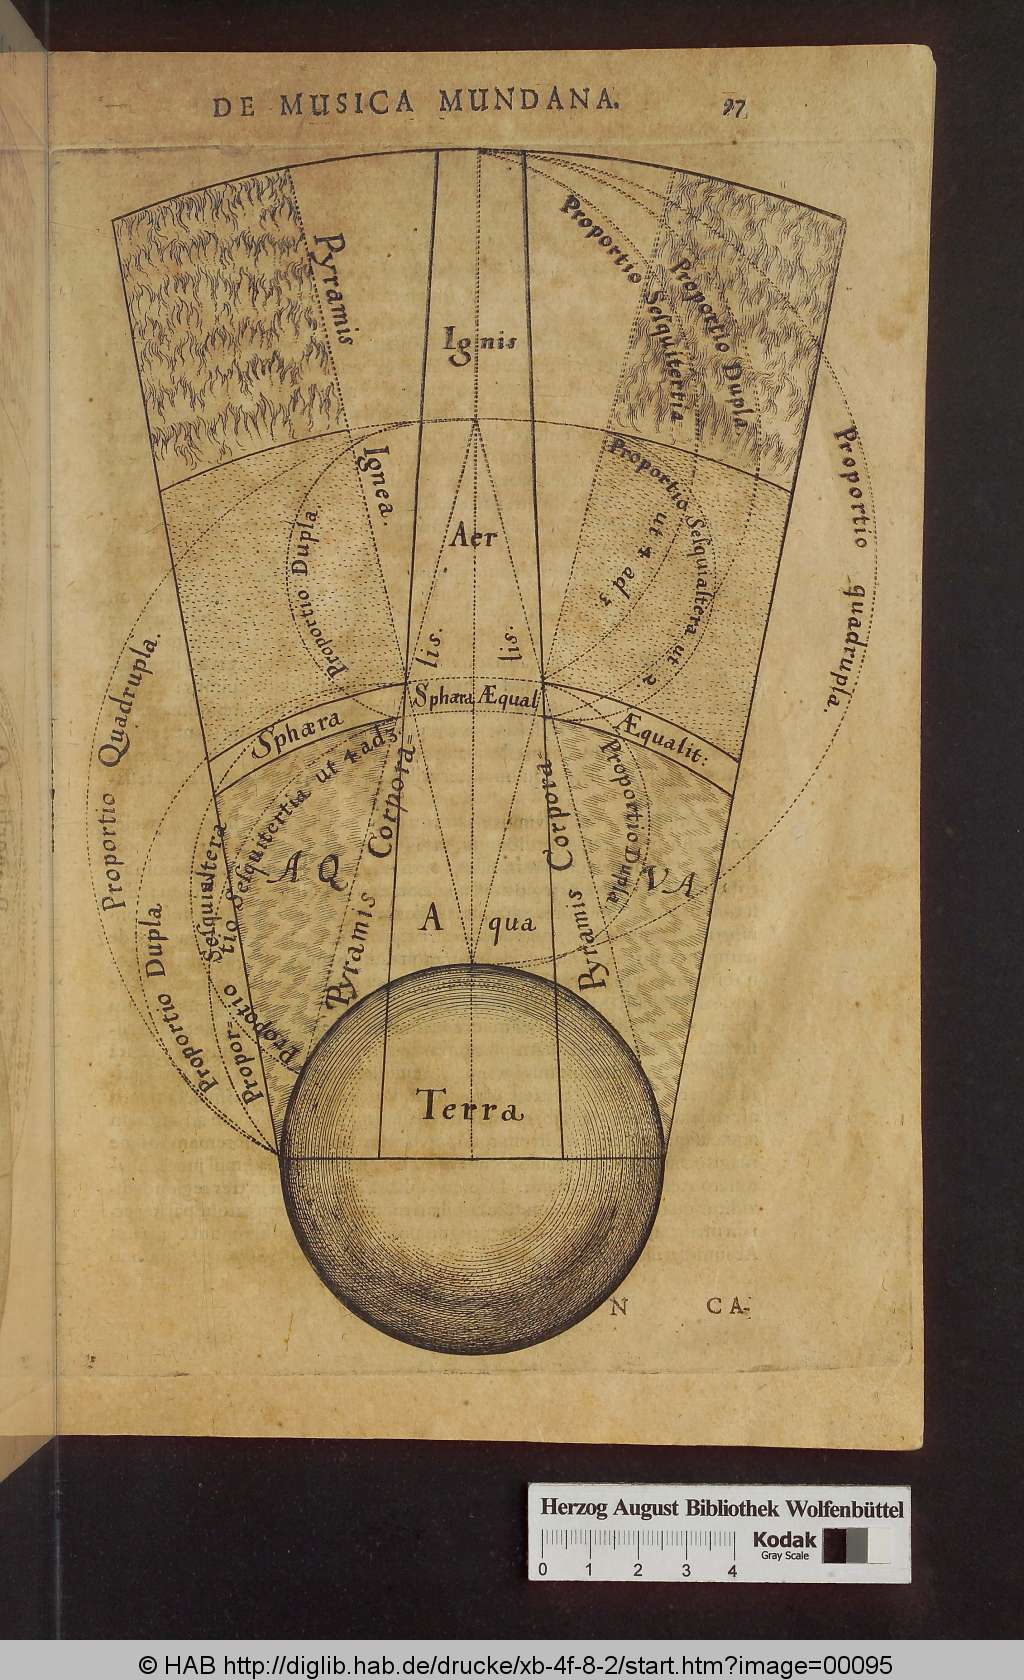 DE MUSICA MUNDANA.
97
Pyramis
Ignea.
Ignis
Proportio Sesquitertia
Proportio Dupla
Proportio quadrupla.
Aer
Proportio Dupla
Proportio Sesquialtera ut
ut 4 ad 3
Proportio Quadrupla.
lis.
lis.
Sphæra Æqual
Sphæra
Æqualit:
Pyramis Corpora=
Pyramis Corpora
Proportio Dupla
Propor tio Sesquitertia ut 4 ad 3
Proportio Sesquialtera
Proportio Dupla
A Q
VA
A qua
Terra
N
CA-
Herzog August Bibliothek Wolfenbüttel
Kodak
Gray Scale
0 1 2 3 4
© HAB http://diglib.hab.de/drucke/xb-4f-8-2/start.htm?image=00095